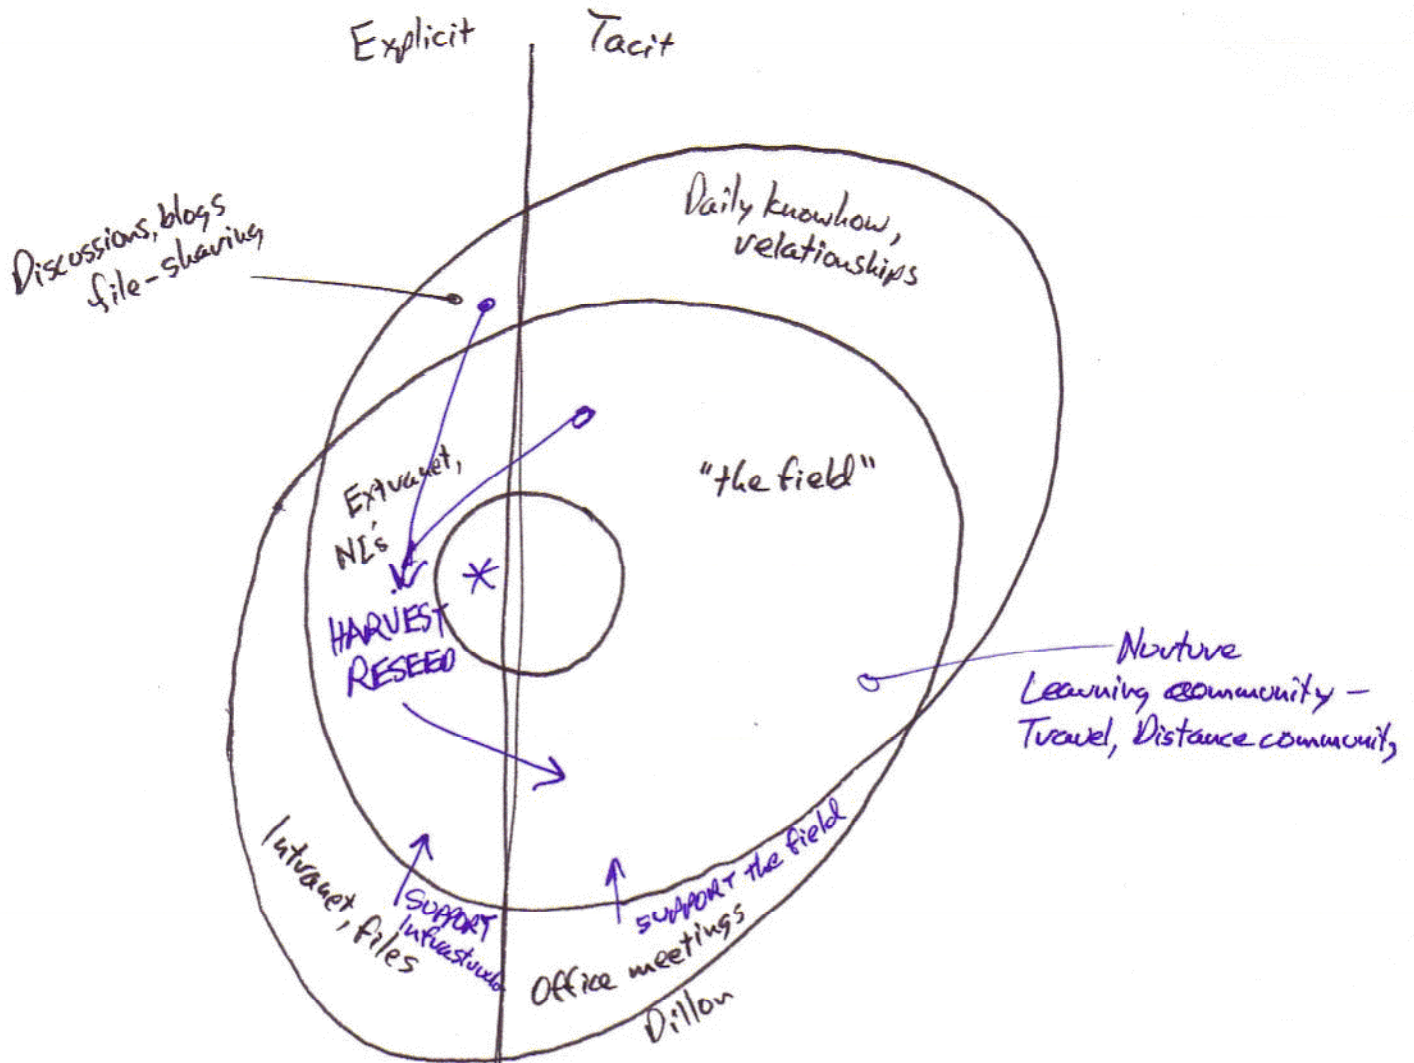 Explicit
Tacit
Discussions, blogs
file-sharing
Daily knowhow,
relationships
Extranet,
NI's
"the field"
HARVEST
RESEED
Nurture
Learning community –
Travel, Distance community
Intranet, files
SUPPORT
SUPPORT the field
Office meetings
Dillon